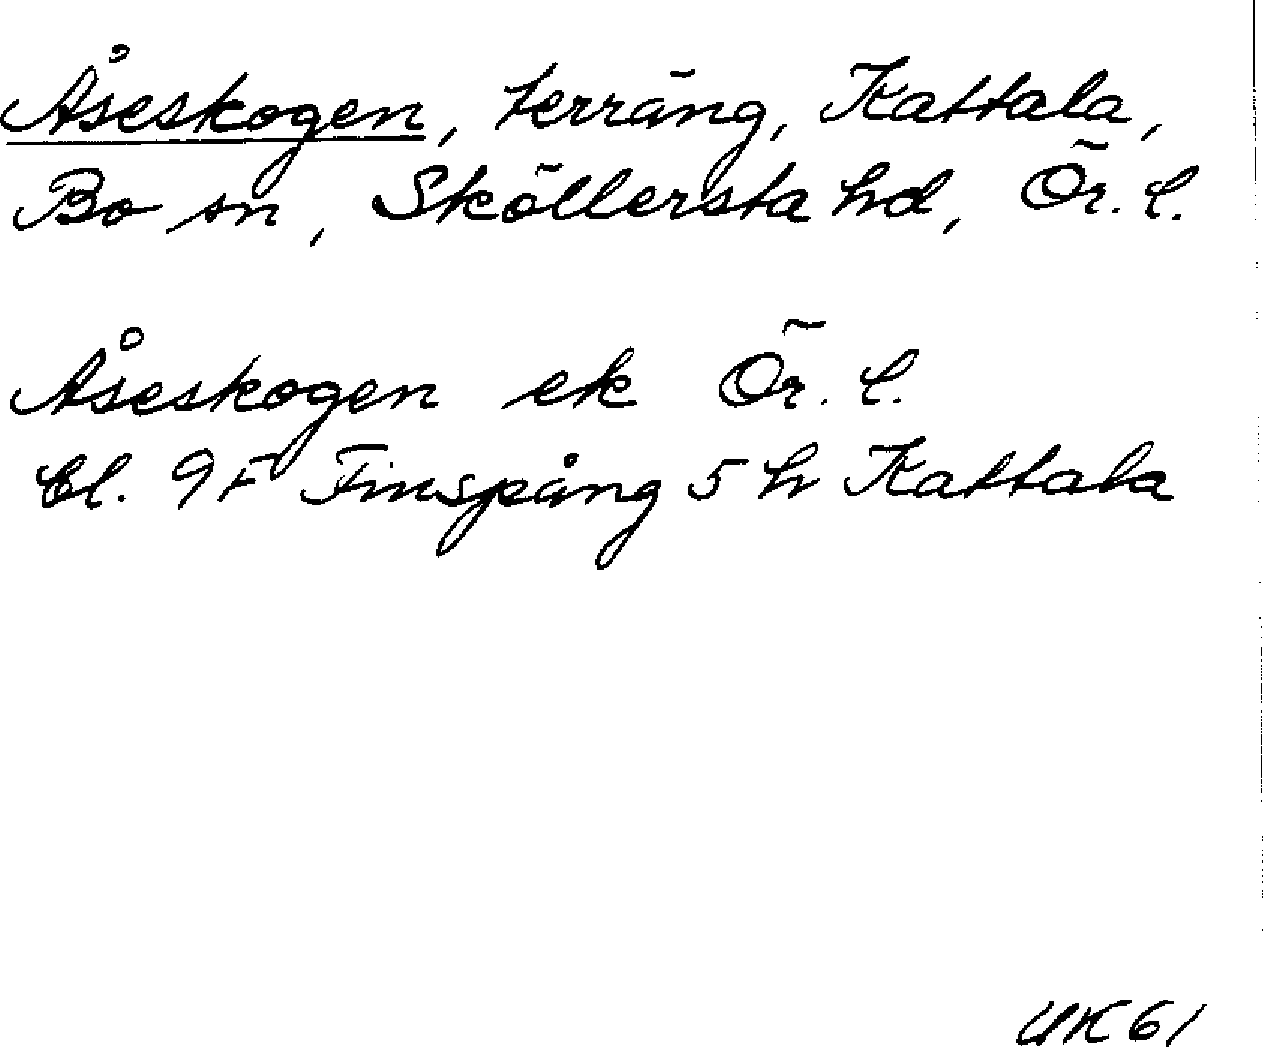 Åseskogen, terräng, Kattala,
Bo sn, Sköllersta hd, Ör. l.
Åseskogen ek Ör. l.
Bl. 9F Finspång 5 h Kattala
UK 61